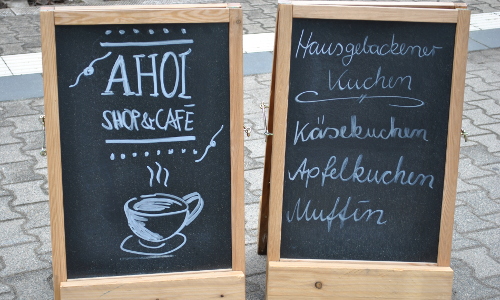 AHOI
SHOP & CAFÉ
Hausgebackener
Kuchen
Käsekuchen
Apfelkuchen
Muffin